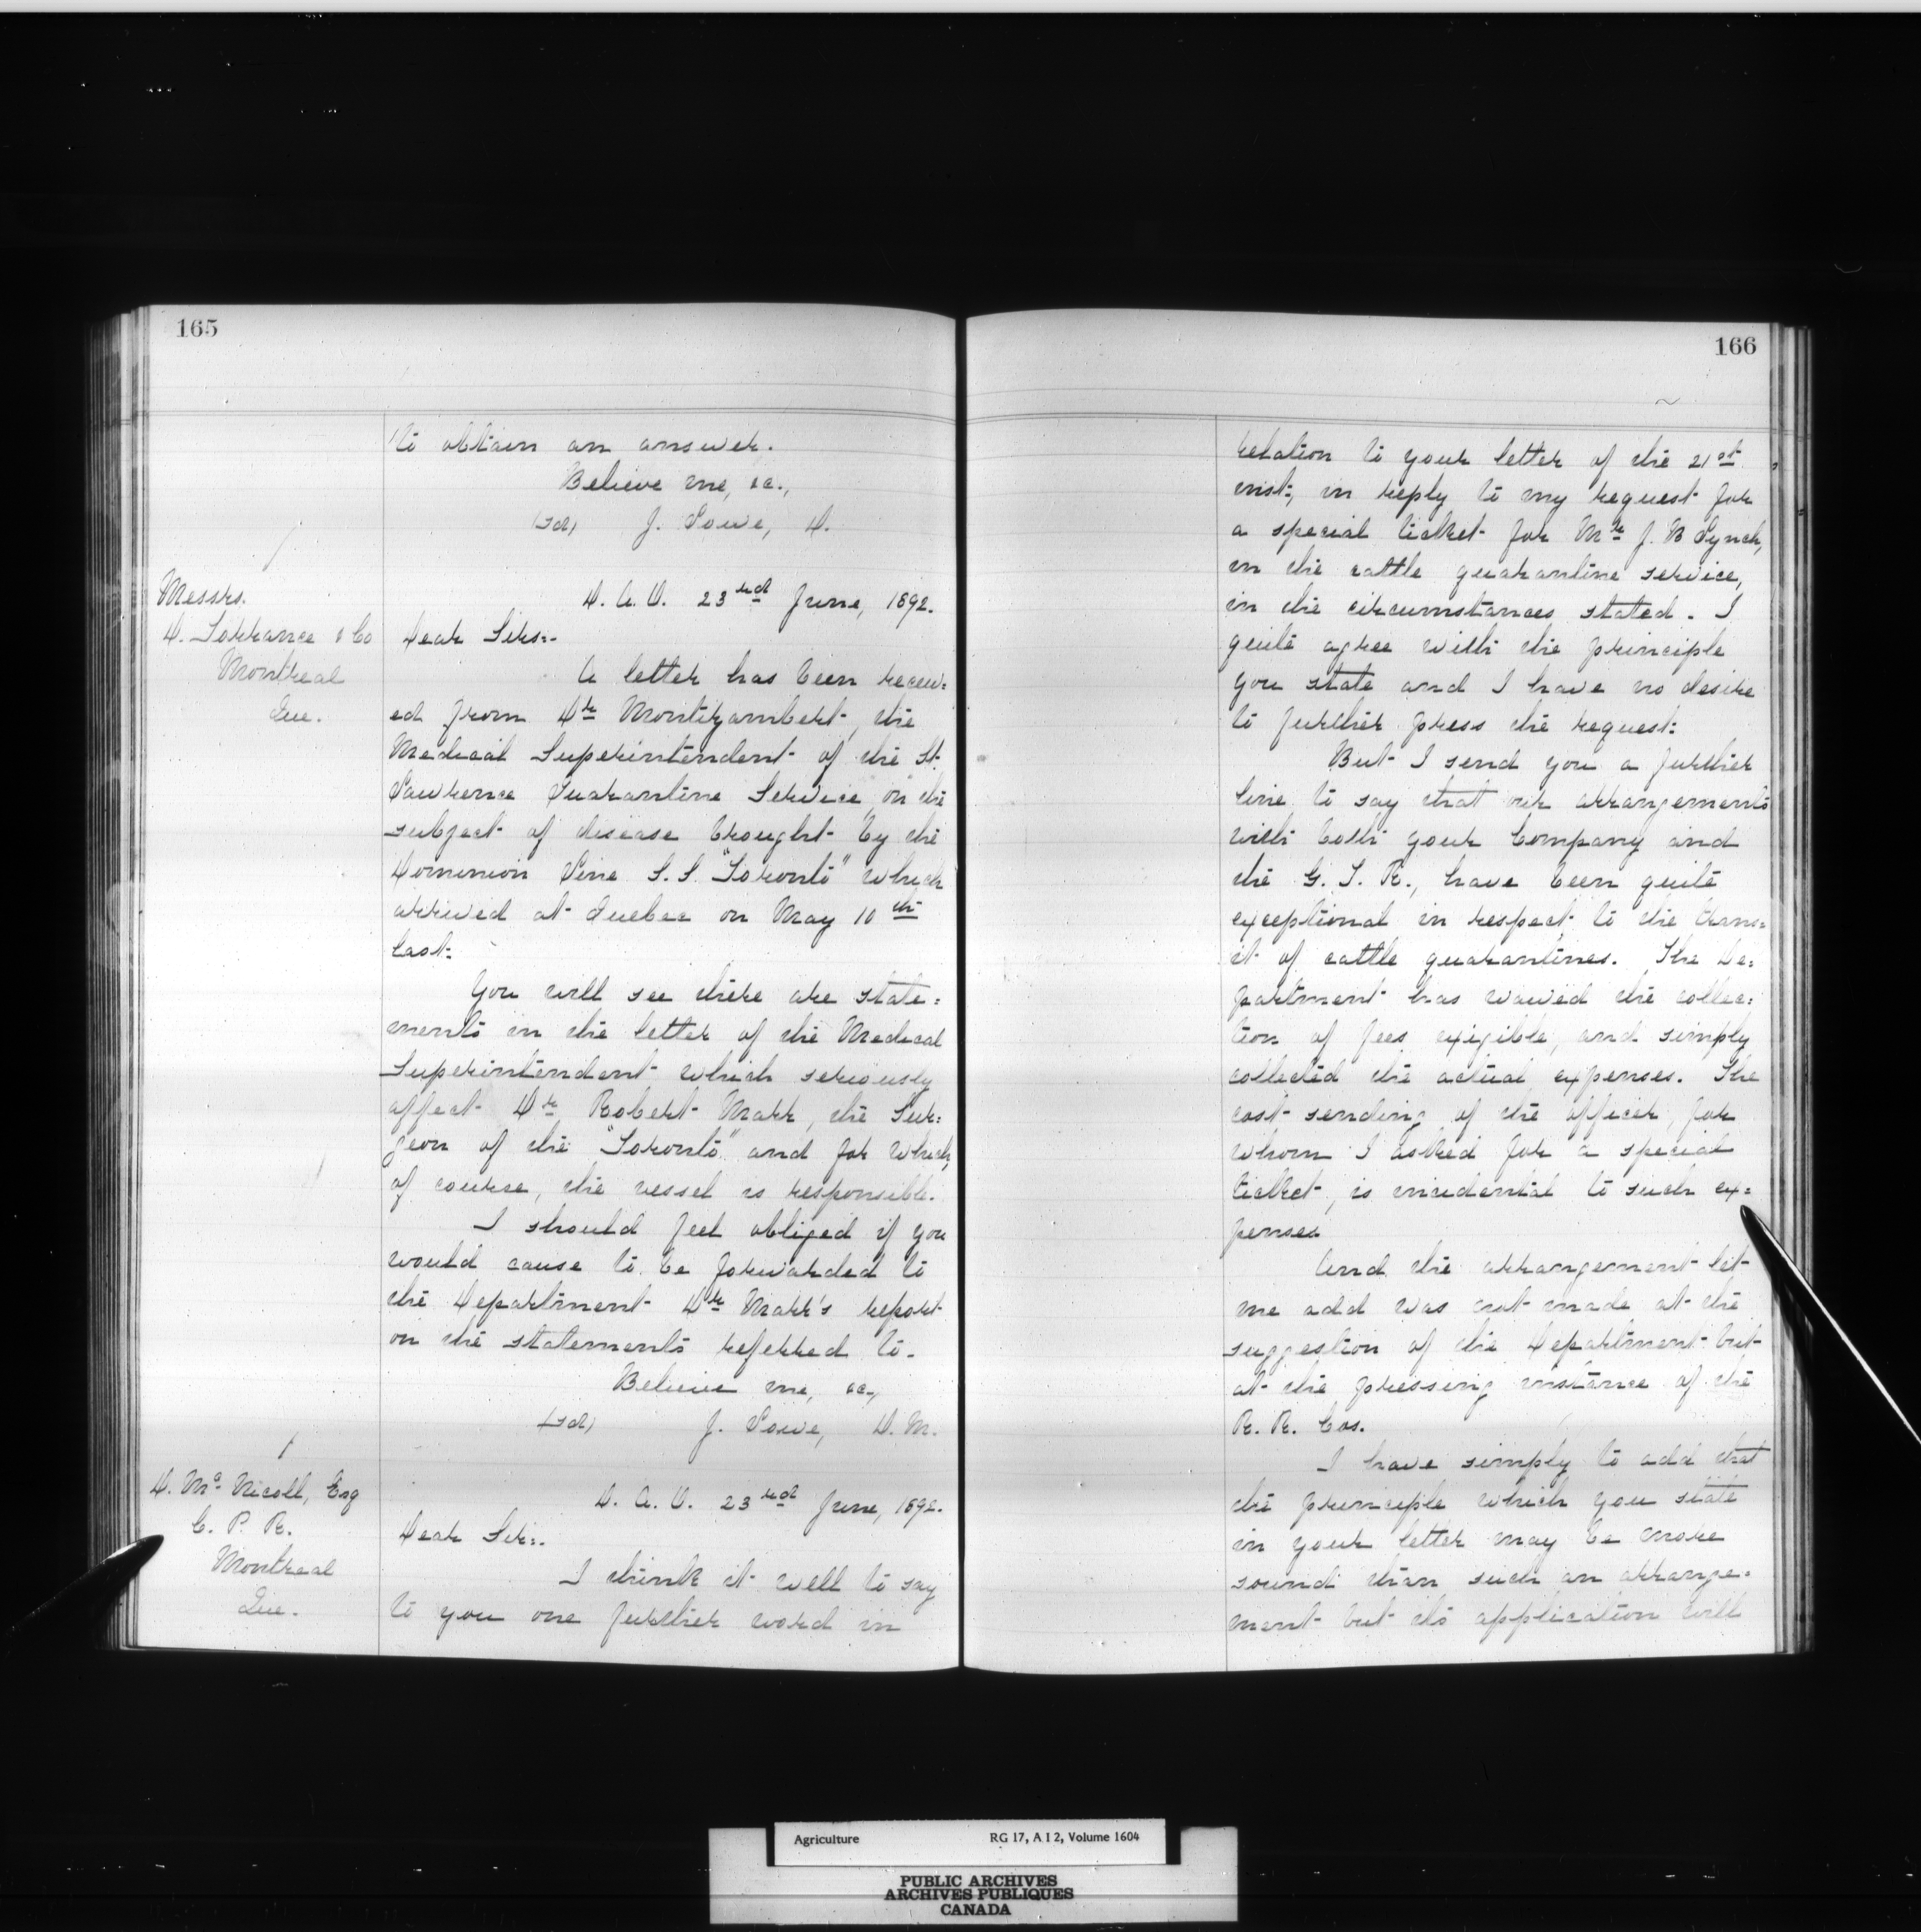 165
to obtain an answer.
Believe me, &c.,
(sd) J. Lowe, D.
Messrs.
D. Torrance & Co
Montreal
Que.
D. A. O. 23rd June, 1892.
Dear Sirs:-
A letter has been receiv=
ed from Dr Montizambert, the
Medical Superintendent of the St.
Lawrence Quarantine Service, on the
subject of disease brought by the
Dominion Line S. S. "Toronto" which
arrived at Quebec on May 10th
last.
You will see there are state=
ments in the letter of the Medical
Superintendent which seriously
affect Dr Robert Mark, the Sur=
geon of the "Toronto" and for which,
of course, the vessel is responsible.
I should feel obliged if you
would cause to be forwarded to
the Department Dr Mark's report
on the statements referred to.
Believe me, &c.,
(sd) J. Lowe, D. M.
D. Mc Nicoll, Esq
C. P. R.
Montreal
Que.
D. A. O. 23rd June, 1892.
Dear Sir:.
I think it well to say
to you one further word in
166
relation to your letter of the 21st
inst, in reply to my request for
a special ticket for Mr J. B Lynch,
in the cattle quarantine service,
in the circumstances stated. I
quite agree with the principle
you state and I have no desire
to further press the request.
But I send you a further
line to say that our arrangements
with both your Company and
the G. T. R., have been quite
exceptional in respect to the trans=
it of cattle quarantines. The De=
partment has waived the collec=
tion of fees exigible, and simply
collected the actual expenses. The
cost sending of the officer, for
whom I asked for a special
ticket, is incidental to such ex=
penses
And the arrangement let
me add was not made at the
suggestion of the Department but
at the pressing instance of the
R. R. Cos.
I have simply to add that
the principle which you state
in your letter may be more
sound than such an arrange=
ment but its application will
Agriculture RG 17, A I 2, Volume 1604
PUBLIC ARCHIVES
ARCHIVES PUBLIQUES
CANADA